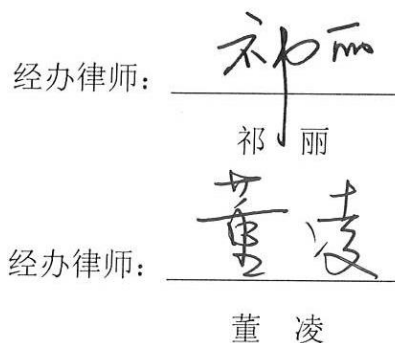 经办律师： 祁丽
祁 丽
经办律师： 董凌
董 凌